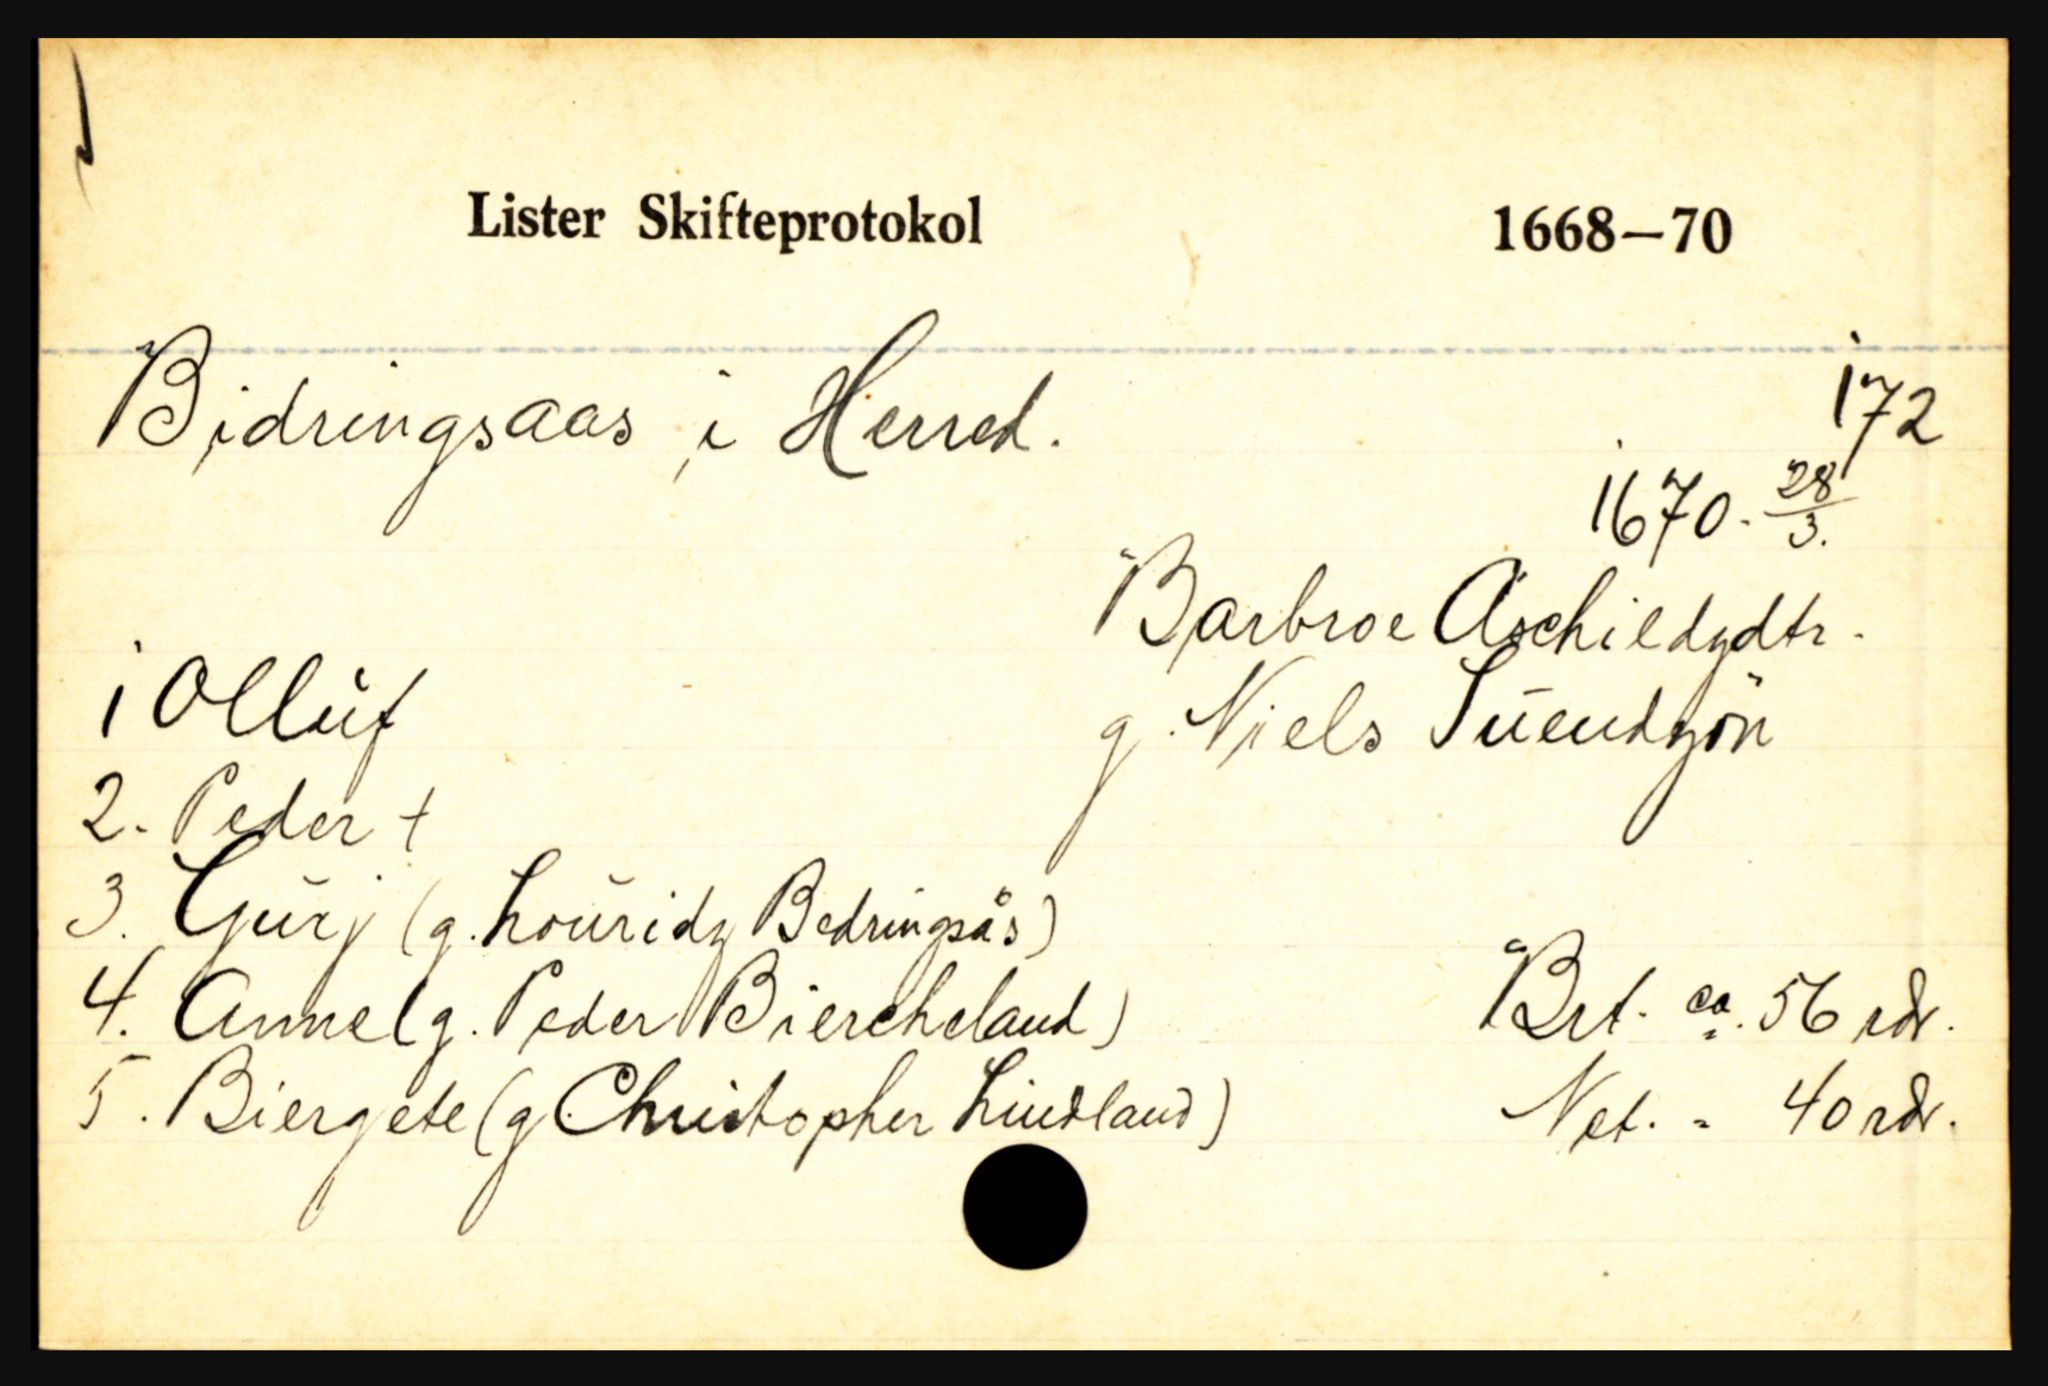 Lister Skifteprotokol 1668—70
Bidringsaas i Herred. 172
1670. 28/3.
Barbroe Aschildzdtr.
g. Niels Suendzön
1 Olluf
2. Peder †
3. Gurj (g. Louridz Bedringsås)
4. Anne (g. Peder Biercheland)
5. Biergete (g. Christopher Lindland)
Brt. ca. 56 rdr.
Net. " 40 rdr.